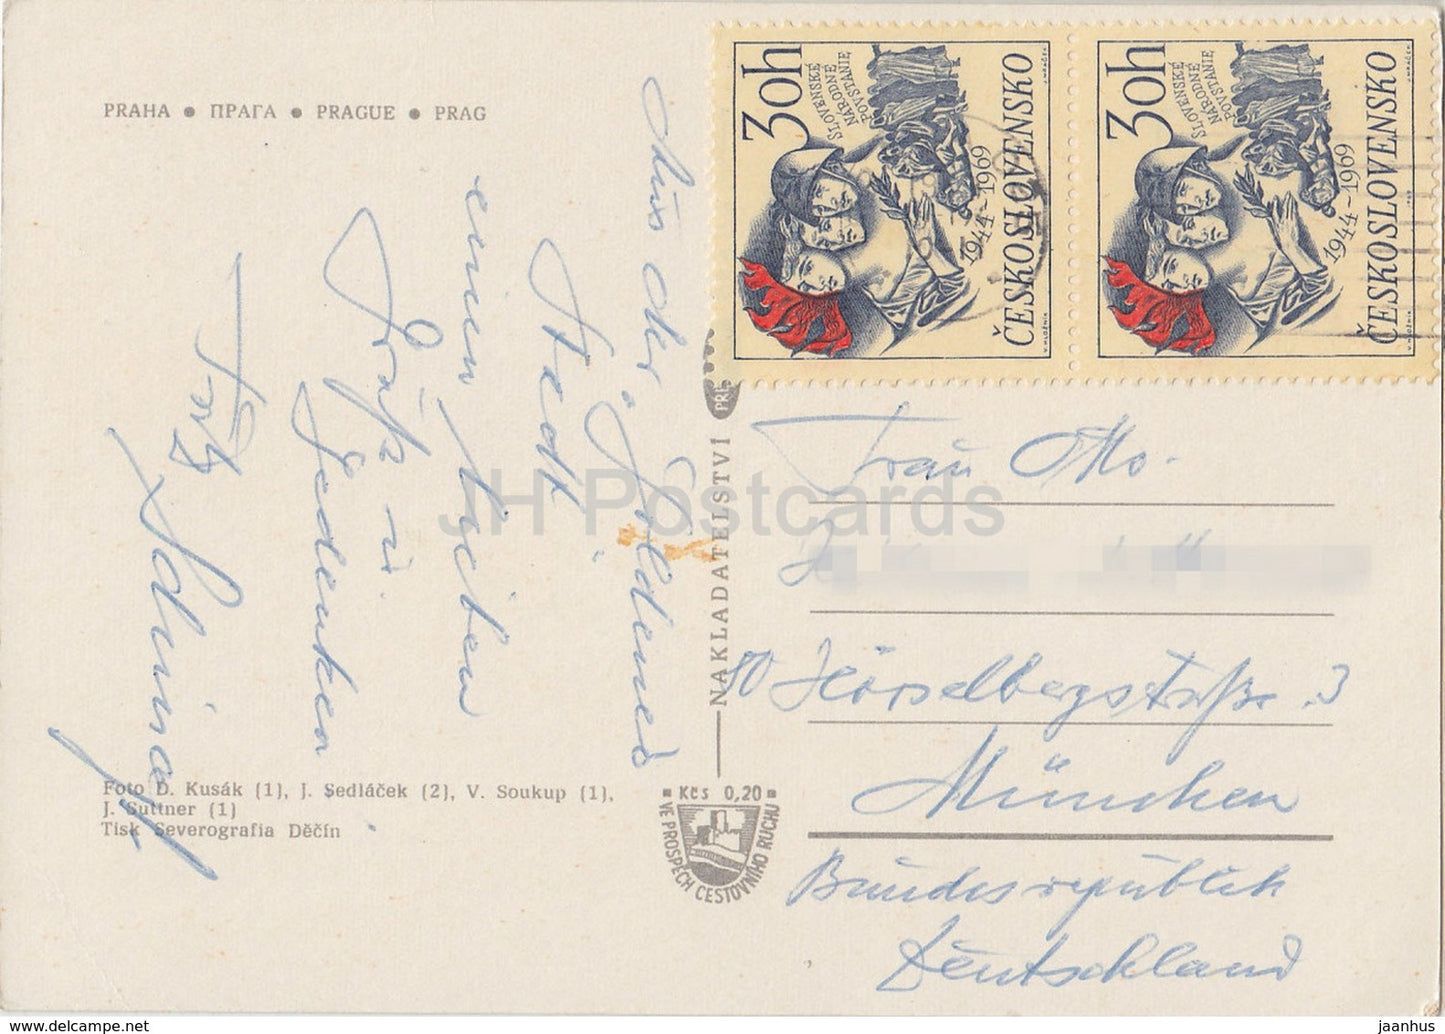 PRAHA ● ПРАГА ● PRAGUE ● PRAG
Aus der Goldenen
Stadt
einen lieben
Gruß u.
Gedenken
Foto D. Kusák (1), J. Sedláček (2), V. Soukup (1),
J. Suttner (1)
Tisk Severografia Děčín
NAKLADATELSTVÍ
Kčs 0,20
VE PROSPĚCH CESTOVNÍHO RUCHU
30h
SLOVENSKÉ
NÁRODNÉ
POVSTANIE
1944-1969
ČESKOSLOVENSKO
V. HLOŽNÍK
30h
SLOVENSKÉ
NÁRODNÉ
POVSTANIE
1944-1969
ČESKOSLOVENSKO
V. HLOŽNÍK
Frau Otto
80 Hörselbergstraße 3
München
Bundesrepublik
Deutschland
JH Postcards
www.delcampe.net
jaanhus